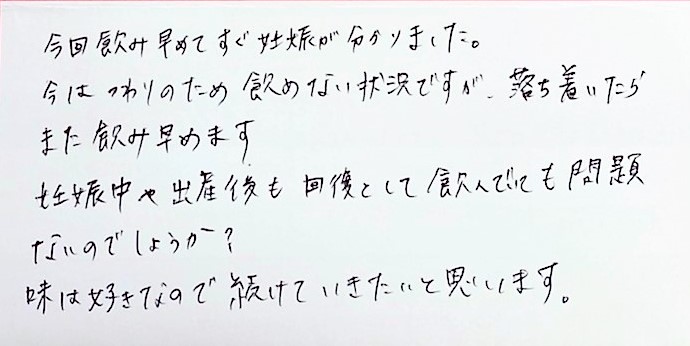 今回飲み早めてすぐ妊娠が分かりました。
今はつわりのため飲めない状況ですが、落ち着いたら
また飲み早めます
妊娠中や出産後も回復として飲んでいても問題
ないのでしょうか?
味は好きなので続けていきたいと思います。